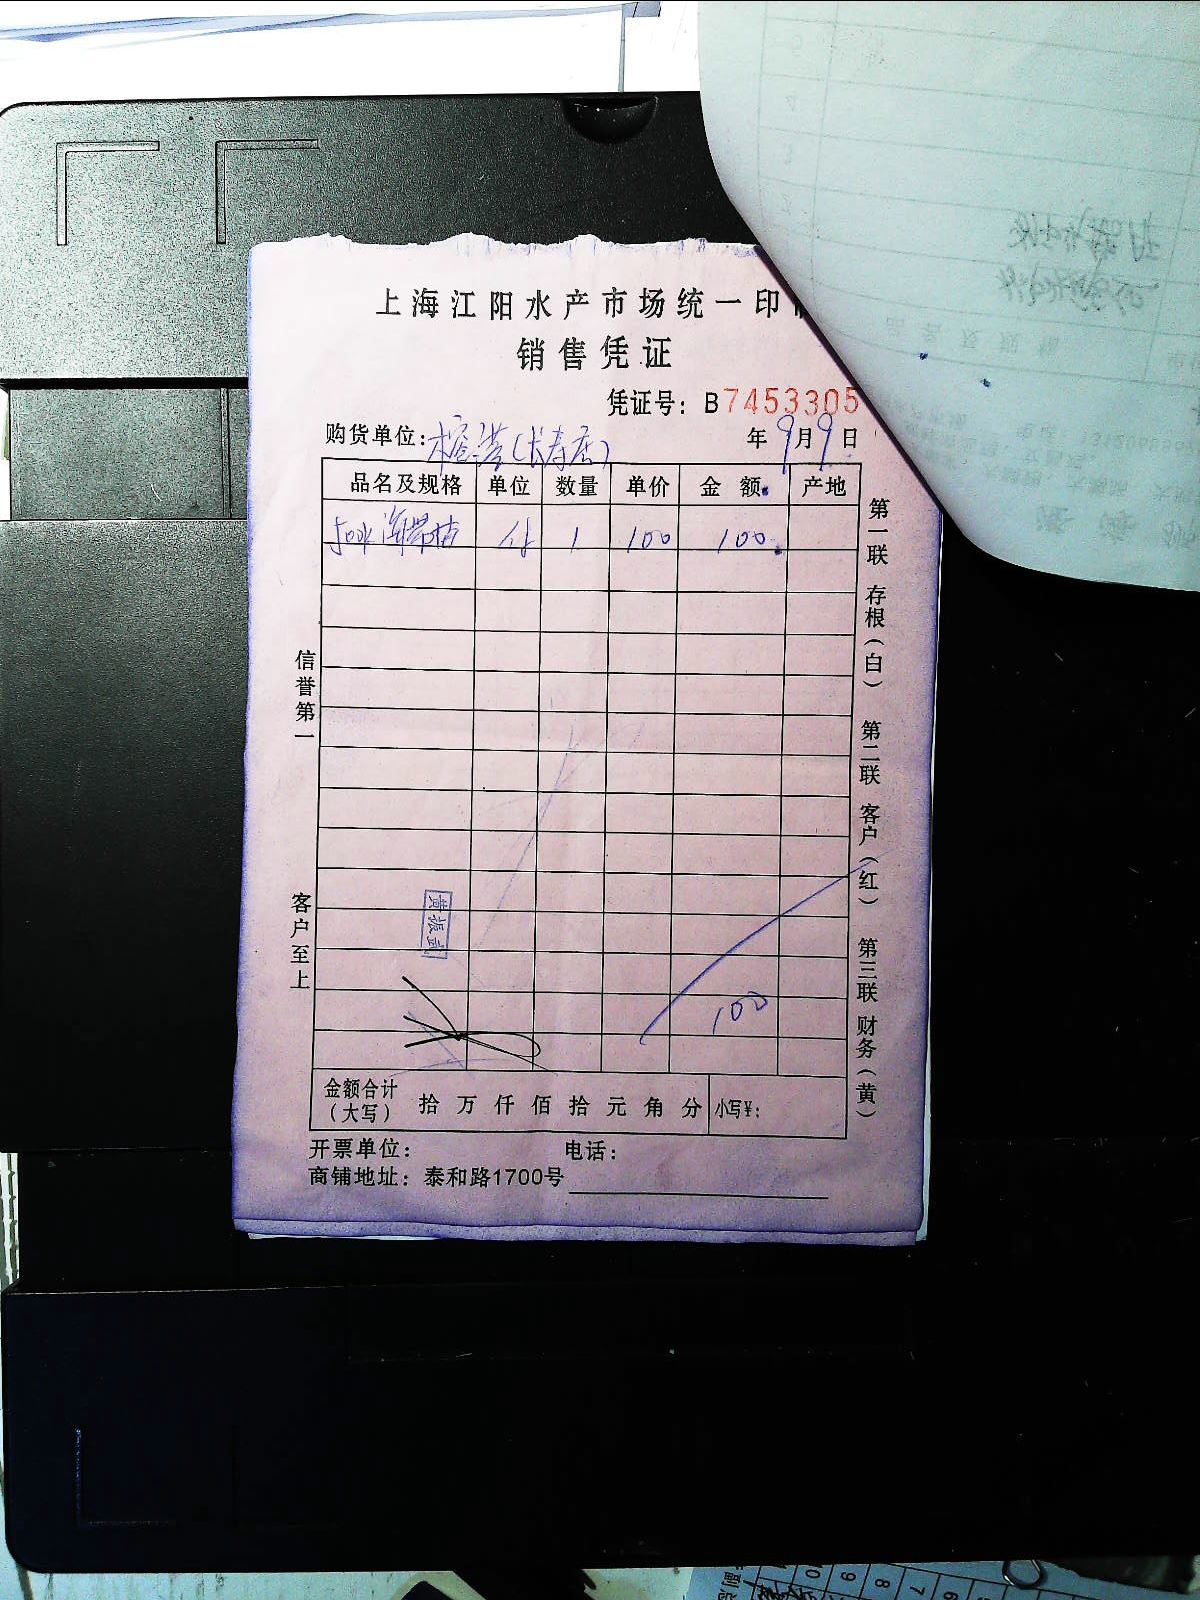 上海江阳水产市场统一印
销售凭证
凭证号：B7453305
购货单位：榕港(长寿店) 年9月9日
品名及规格 单位 数量 单价 金额 产地
海带结 件 1 100 100
100
信誉第一
客户至上
第一联 存根（白） 第二联 客户（红） 第三联 财务（黄）
黄振武
金额合计（大写） 拾 万 仟 佰 拾 元 角 分 小写￥:
开票单位： 电话：
商铺地址：泰和路1700号